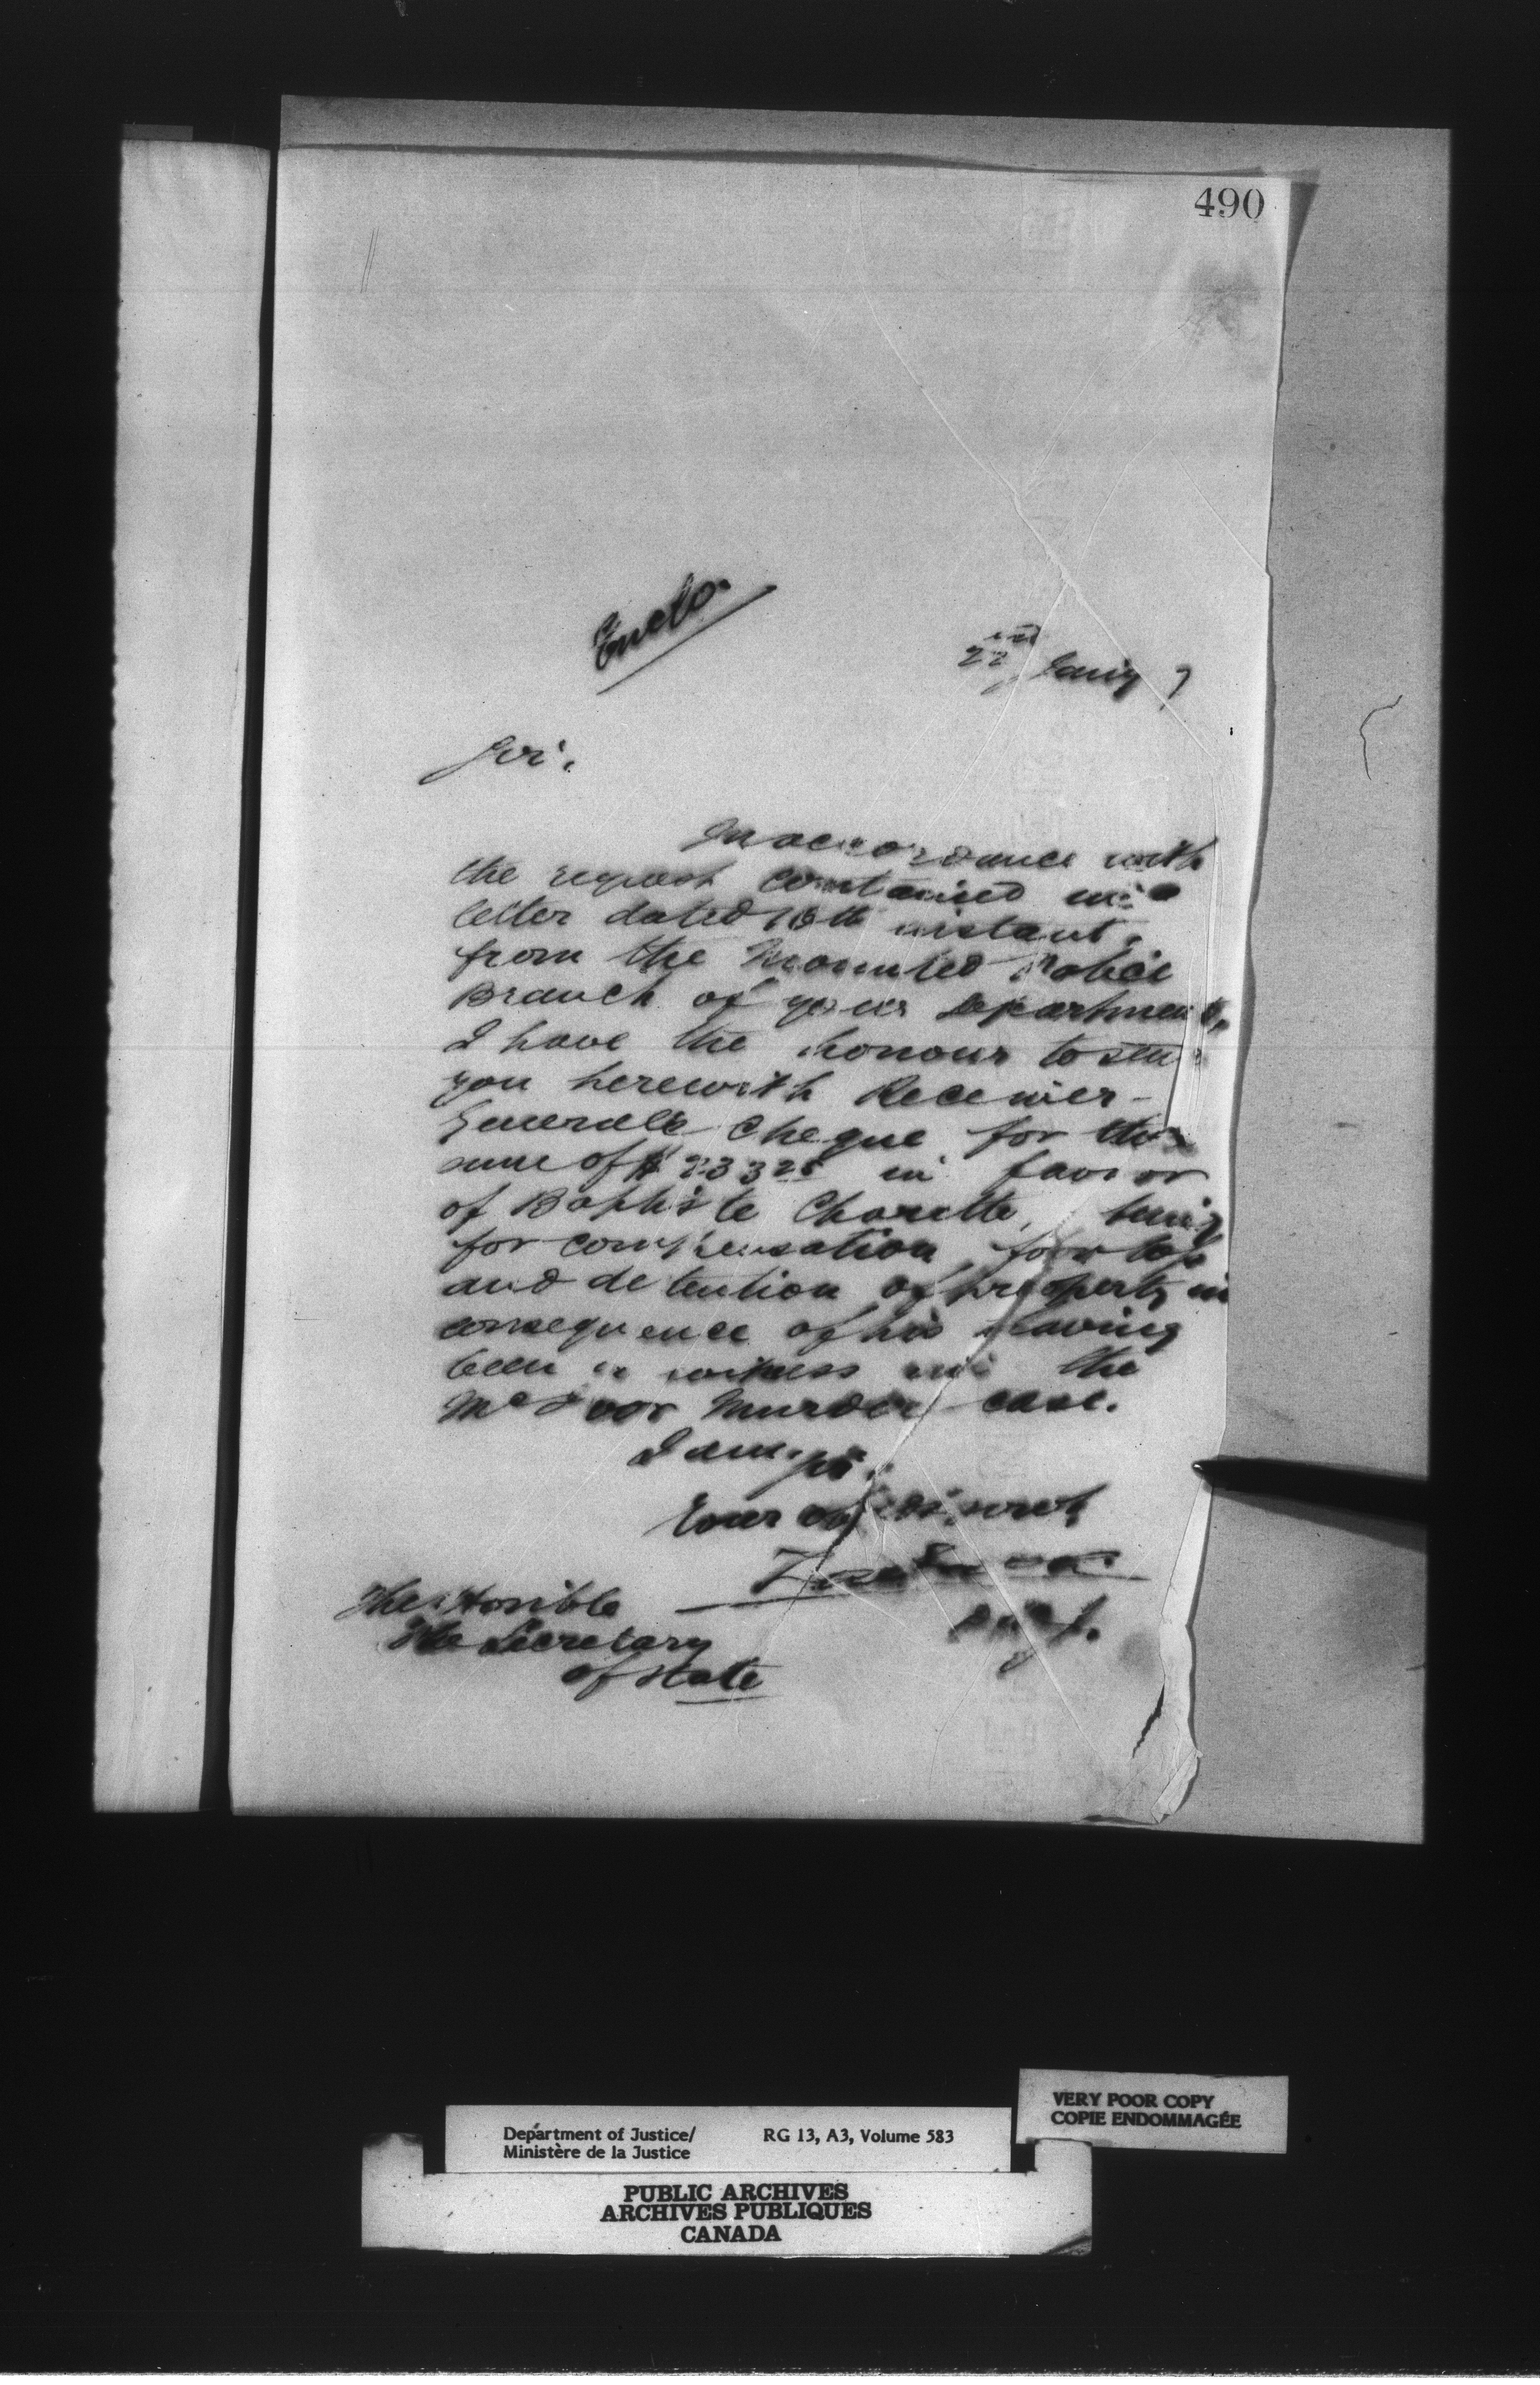 490
Enclo.
22nd Jany 7
Sir,
In accordance with
the request contained in a
letter dated 16th instant,
from the Mounted Police
Branch of your Department,
I have the honour to send
you herewith Receiver-
General's Cheque for the
sum of $233 25 in favor
of Baptiste Charette, being
for compensation for loss
and detention of property in
consequence of his having
been a witness in the
McIvor Murder case.
I am, Sir,
Your obedt. servt
The Honble
The Secretary
of State
Department of Justice/ RG 13, A3, Volume 583
Ministère de la Justice
VERY POOR COPY
COPIE ENDOMMAGÉE
PUBLIC ARCHIVES
ARCHIVES PUBLIQUES
CANADA